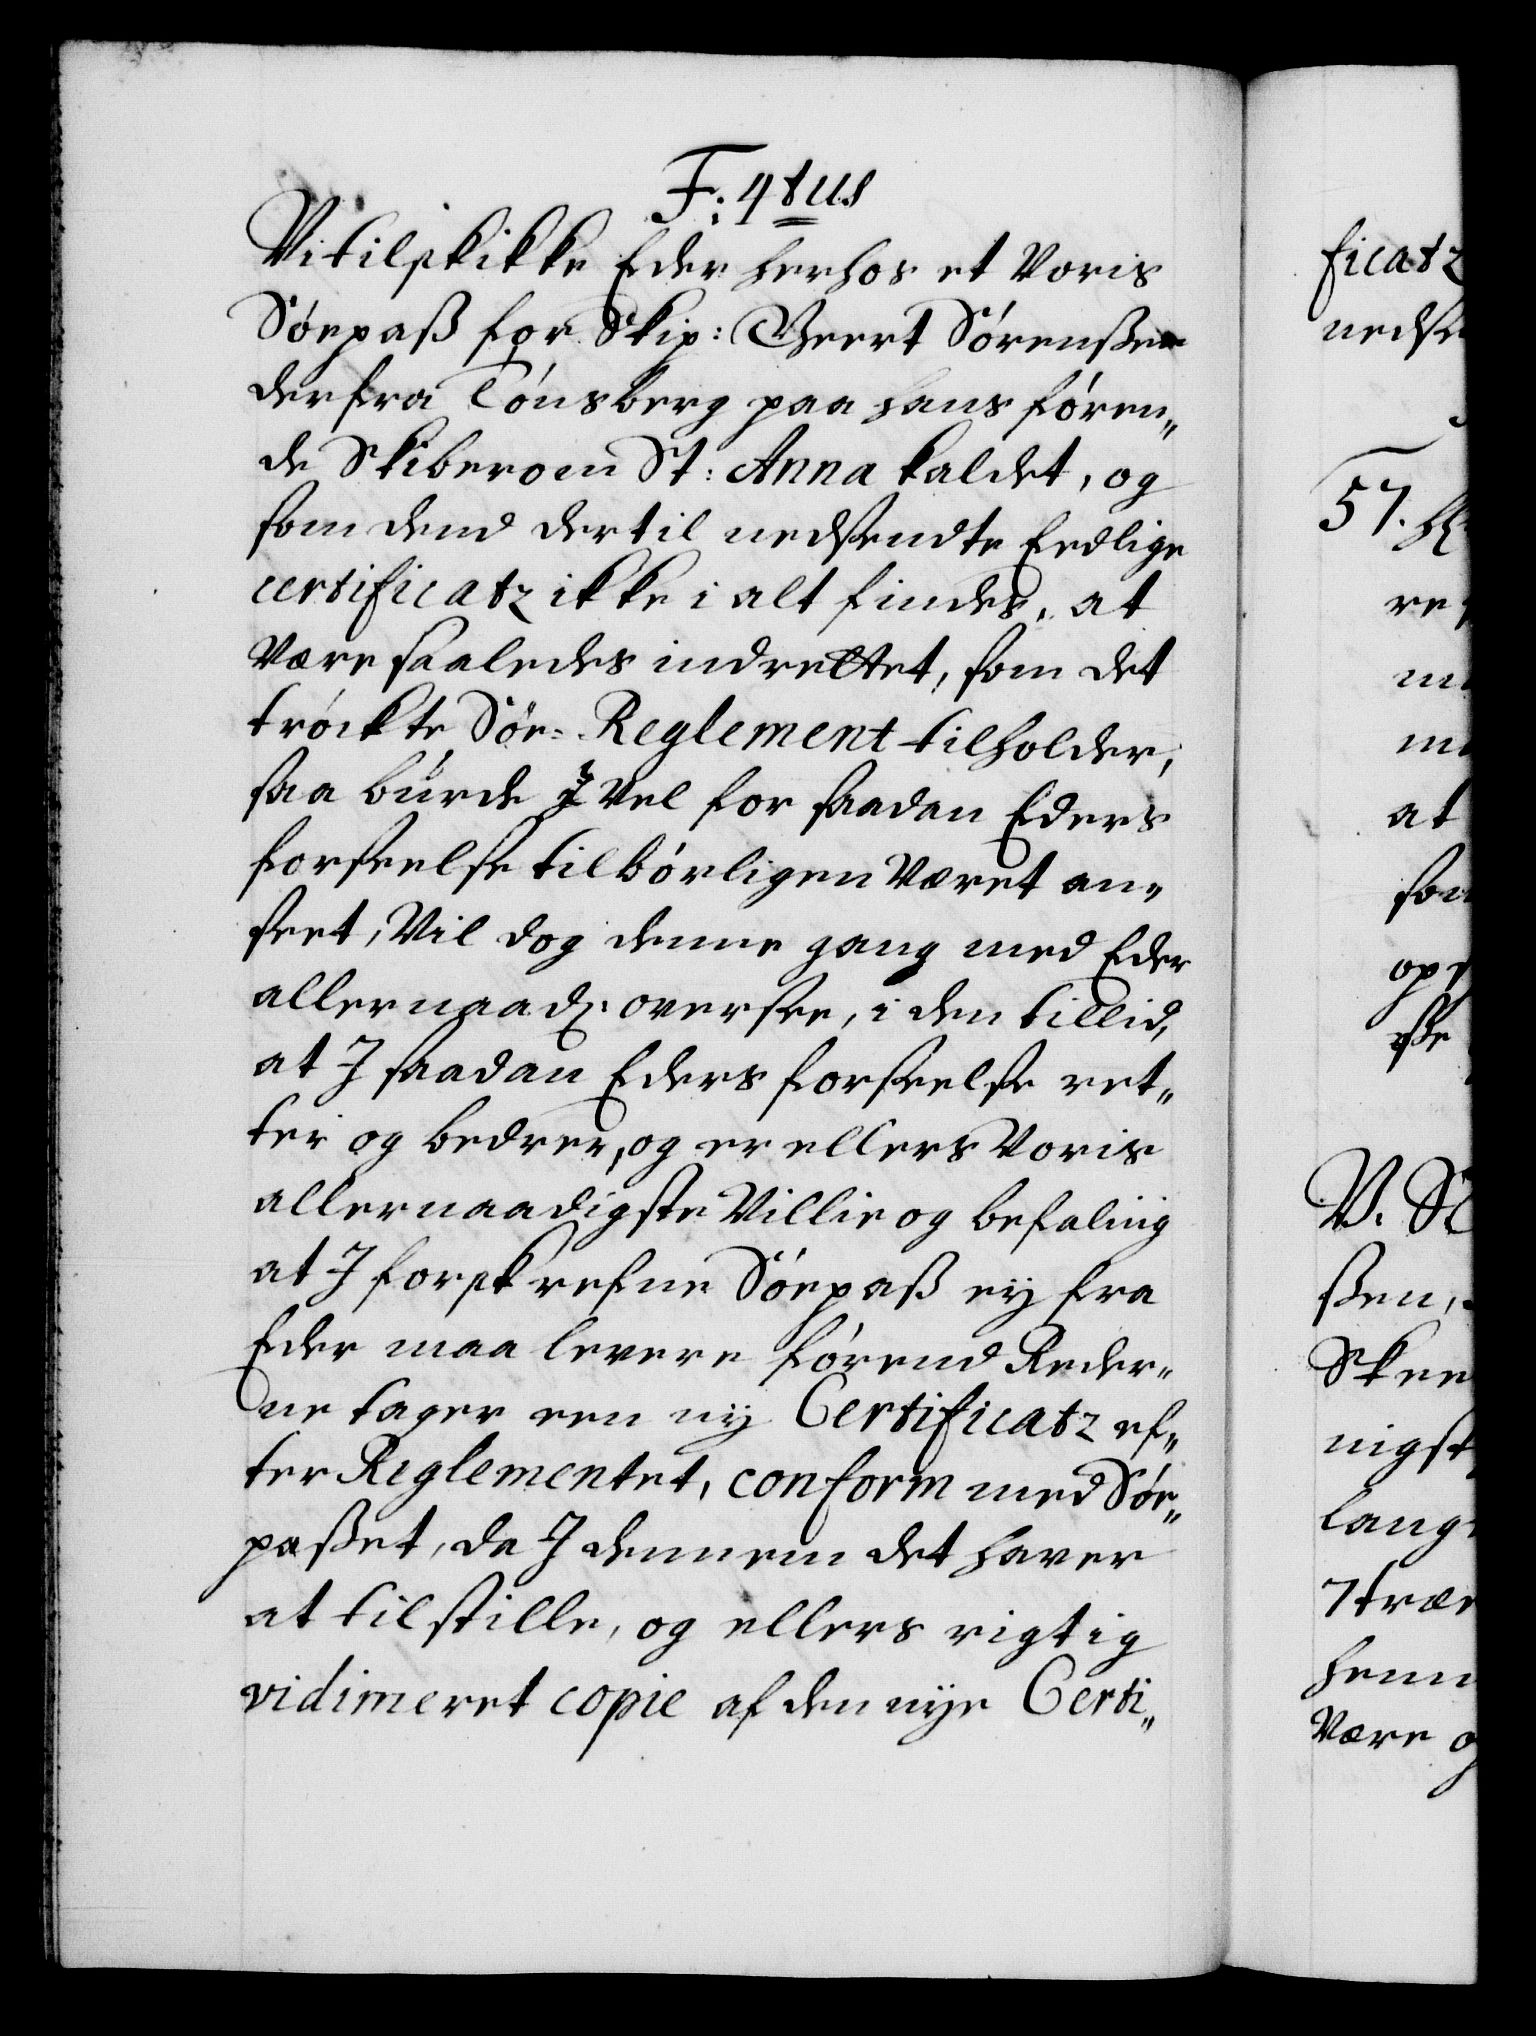 F: 4tus
Vi tilskikke Eder herhos et Voris
Söepaß for Skip: Geert Sörenßen
derfra Tönsberg paa hans fören„
de Skiberom St: Anna kaldet, og
som dend dertil nedsendte Eedlige
certificatz ikke i alt findes, at
være saaledes indrettet, som det
tröckte Söe-Reglement tilholder,
saa burde I vel for saadan Eders
forseelse tilbörligen Været an„
seet, Vil dog denne gang med Eder
allernaad: oversee, i den tillid,
at I saadan Eders forseelse ret„
ter og bedrer, og er ellers Voris
allernaadigste Villie og befaling
at I forskrefne Söepaß ey fra
Eder maa levere förend Reder„
ne tager een ny Certificatz ef„
ter Reglementet, conform med Söe„
paßet, da I dennem det haver
at tilstille, og ellers rigtig
vidimeret copie af den nye Certi„
ficatz
57.
at
V.
ßen,
være